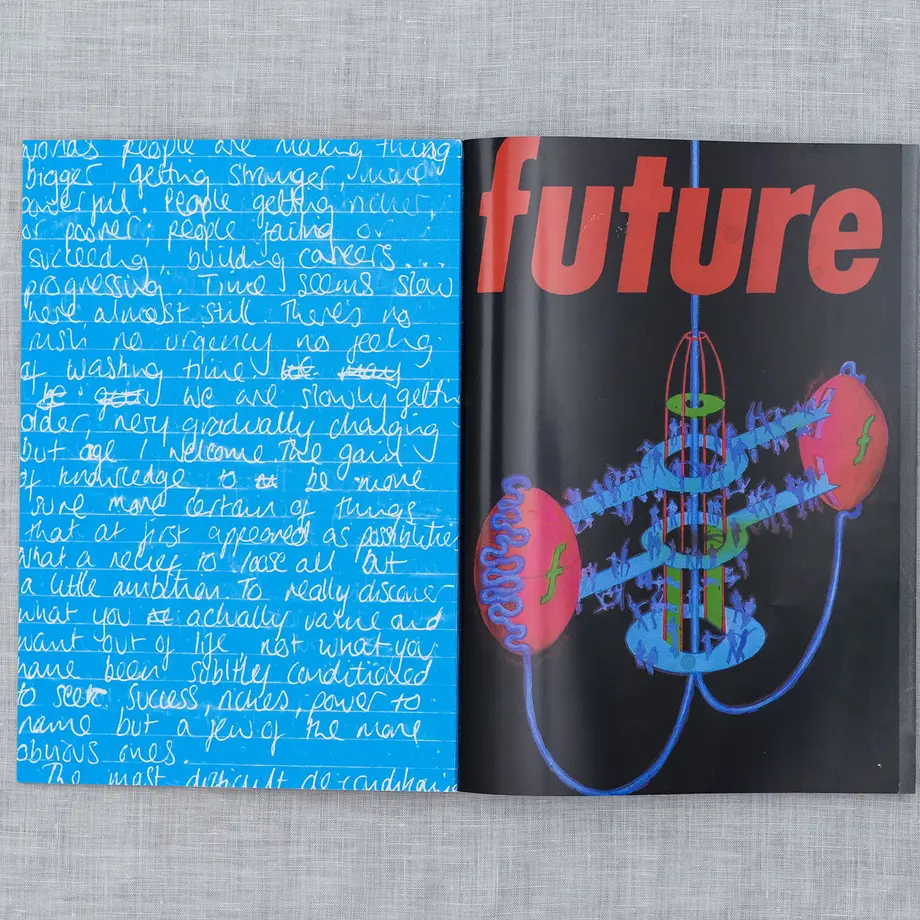 worlds people are making things
bigger getting stronger, more
powerful. People getting richer,
or poorer, people failing or
succeeding, building careers...
progressing. Time seems slow
here almost still. There's no
rush no urgency no feeling
of wasting time we may
be getti we are slowly getting
older, very gradually changing
but age I welcome the gain
of knowledge to be more
sure more certain of things
that at first appeared as possibilities
What a relief to loose all but
a little ambition. To really discover
what you actually value and
want out of life not what you
have been subtley conditioned
to seek success, riches, power to
name but a few of the more
obvious ones.
The most difficult de-conditioning
future
f
f